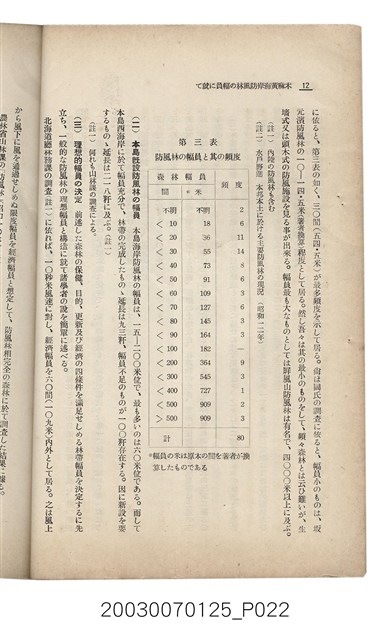 12 木麻黄海岸防風林の幅員に就て
に依ると、第三表の如く、三〇間(五四・五米)が最多頻度を示して居る。尙ほ同氏の調査に依ると、幅員小のものは、
壞式又は頭木式の防風施設を見る事が出來る。幅員最も大なものとしては屛風山防風林は有名で、四〇〇〇米以上に及ぶ。
(註一) 內陸の防風林も含む
第三表
防風林の幅員と其の頻度
森林幅員 頻度
間 *米
不明 不明 2
< 10 18 6
< 20 36 11
< 30 55 14
< 40 73 8
< 50 91 6
< 60 109 3
< 70 127 6
< 80 145 3
< 90 164 3
< 100 182 —
< 200 364 9
< 300 545 3
< 400 727 1
< 500 909 2
> 500 909 3
計 80
*幅員の米は原本の間を著者が換
算したものである
(二) 本島既設防風林の幅員 本島海岸防風林の幅員は、一五—二〇〇米位で、最も多いのは六〇米位である。而して
本島四海岸に於て幅員充分で、林帶の完成したもの、延長は九三粁、幅員不足のものが一〇〇粁存在する。因に新設を要
するもの、延長は二一八粁に及ぶ。(註一)
(註一) 何れも山林課の調査による。
(三) 理想的幅員の決定 前述した森林の保健、目的、更新及び經濟の四條件を滿足せしめる林帶幅員を決定するに先
立ち、一般的な防風林の理想幅員と構造に就て諸學者の說を簡單に述べる。
北海道廳林務課の調査(註一)に依れば、一〇秒米風速に對し、經濟幅員を六〇間(一〇九米)內外として居る。之は風上
から風下に風を通過せしめぬ限度幅員を經濟幅員と想定して、防風林相完全の森林に於て調査した結果に據る。
20030070125_P022